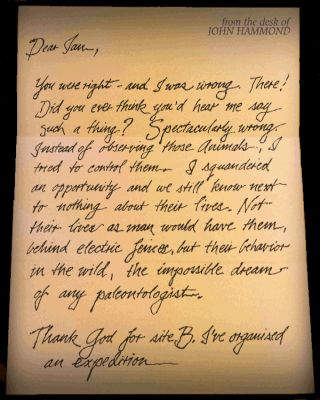 from the desk of
JOHN HAMMOND
Dear Ian,
You were right - and I was wrong. There!
Did you ever think you'd hear me say
such a thing? Spectacularly wrong.
Instead of observing those Animals, I
tried to control them. I squandered
an opportunity and we still know next
to nothing about their lives. Not
their lives as man would have them,
behind electric fences, but their behavior
in the wild, the impossible dream
of any paleontologist.
Thank God for site B. I've organised
an expedition